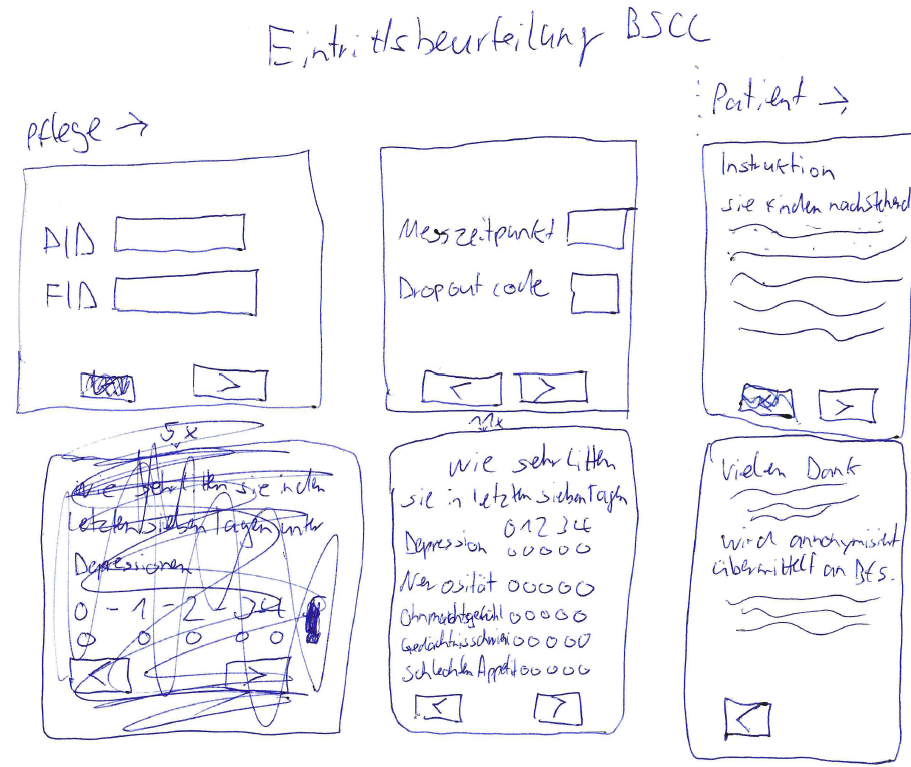 Eintrittsbeurteilung BSCL
Pflege →
Patient →
PID
FID
>
Messzeitpunkt
Dropout code
< >
Instruktion
sie finden nachstehend
>
5x
wie sehr litten sie in den
letzten sieben Tagen unter
Depressionen
0 - 1 - 2 - 3 4
< >
11x
wie sehr litten
sie in letzten sieben Tagen
0 1 2 3 4
Depression
Nervosität
Ohnmachtsgefühl
Gedächtnisschwieri
Schlechten Appetit
< >
Vielen Dank
wird annonymisiert
übermittelt an BfS.
<